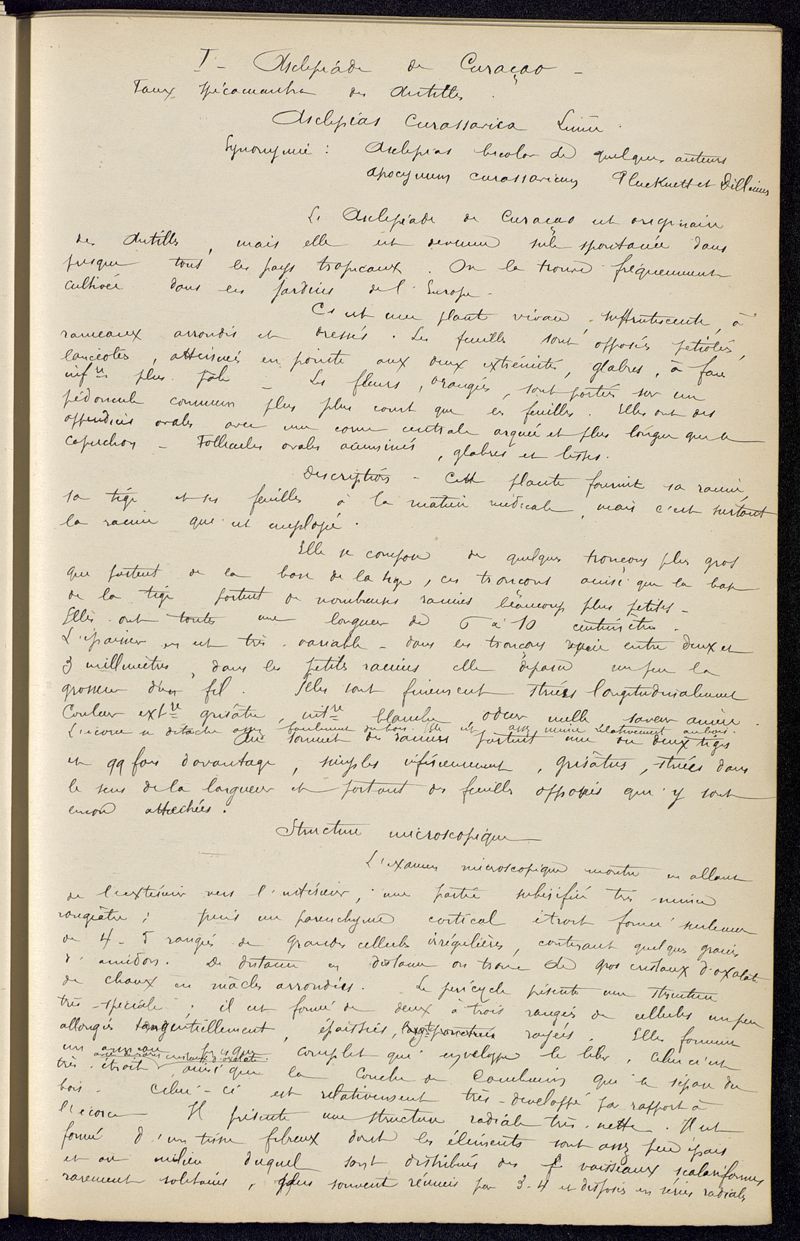 I - Asclépiade de Curaçao -
Faux Ipécacuanha des Antilles.
Asclepias Curassavica Linné.
Synonymie : Asclepias bicolor de quelques auteurs
Apocynum curassavicum Pluckuett et Dillenius
Le Asclépiade de Curaçao est originaire
des Antilles, mais elle est devenue sub-spontanée dans
presque tous les pays tropicaux. On la trouve fréquemment
cultivée dans les jardins de l'Europe.
C'est une plante vivace, suffrutescente, à
rameaux arrondis et dressés. Les feuilles sont opposées pétiolées,
lancéolées, atténuées en pointe aux deux extrémités, glabres, à face
infre plus pâle - Les fleurs, orangées, sont portées sur un
pédoncule commun plus plus court que les feuilles. Elles ont des
appendices ovales avec une corne centrale arquée et plus longue que le
capuchon - Follicules ovales acuminés, glabres et lisses.
Description - Cette plante fournit sa racine,
sa tige et ses feuilles à la matière médicale, mais c'est surtout
la racine qui est employée.
Elle se compose de quelques tronçons plus gros
qui partent de la base de la tige, ces tronçons ainsi que la base
de la tige portent de nombreuses racines beaucoup plus petites -
Elles ont toutes une longueur de 6 à 10 centimètres.
L'épaisseur en est très variable - dans les tronçons varie entre deux et
3 millimètres, dans les petites racines elle dépasse un peu la
grosseur d'un fil. Elles sont finement striées longitudinalement
Couleur extre grisâtre, intre blanche odeur nulle saveur amère.
L'écorce se détache assez facilement du bois. Elle est assez mince relativement au bois.
Au sommet des racines partent une ou deux tiges
et qq fois d'avantage, simples inférieurement, grisâtres, striées dans
le sens de la longueur et portant des feuilles opposées qui y sont
encore attachées.
Structure microscopique
L'examen microscopique montre en allant
de l'extérieur vers l'intérieur, une partie subérifiée très mince
rougeâtre ; puis un parenchyme cortical étroit formé seulement
de 4-5 rangées de grandes cellules irrégulières, contenant quelques grains
d'amidon. De distance en distance on trouve de gros cristaux d'oxalate
de chaux en mâcles arrondies. Le péricycle présente une structure
très-spéciale ; il est formé de deux à trois rangées de cellules un peu
allongées tangentiellement, épaissies, rayées. Elles forment
un anneau presque complet qui enveloppe le liber. Celui-ci est
très étroit, ainsi que la couche de Cambium qui le sépare du
bois. Celui-ci est relativement très-développé par rapport à
l'écorce. Il présente une structure radiale très-nette. Il est
formé d'un tissu fibreux dont les éléments sont assez peu épais
et au milieu duquel sont distribués des vaisseaux scalariformes
rarement solitaires, plus souvent réunis par 3-4 et disposés en séries radiales